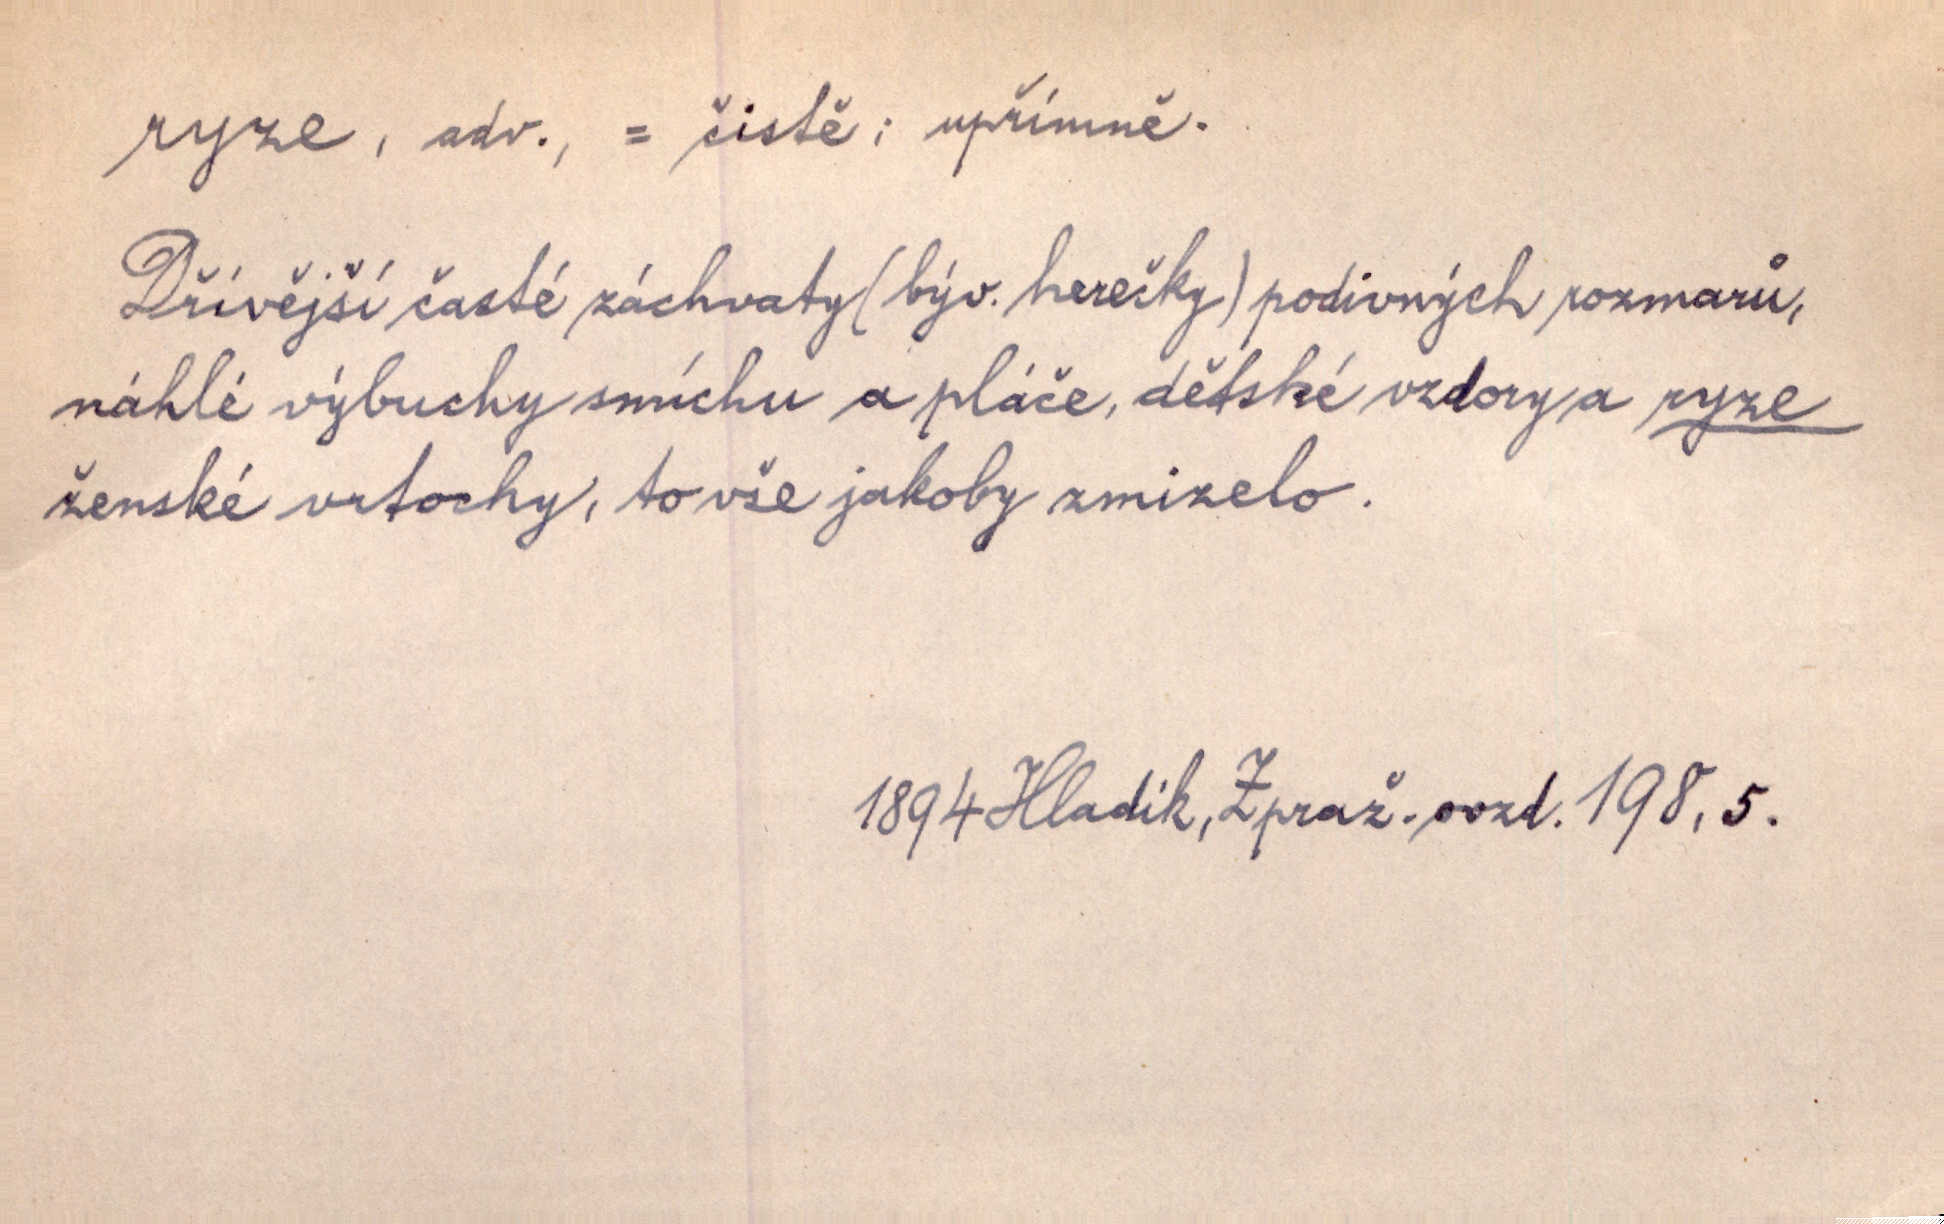 ryze, adv., = čistě; upřímně.
Dřívější časté záchvaty (býv. herečky) podivných rozmarů,
náhlé výbuchy smíchu a pláče, dětské vzdory a ryze
ženské vrtochy, to vše jakoby zmizelo.
1894 Hladík, Z praž. ovzd. 198, 5.